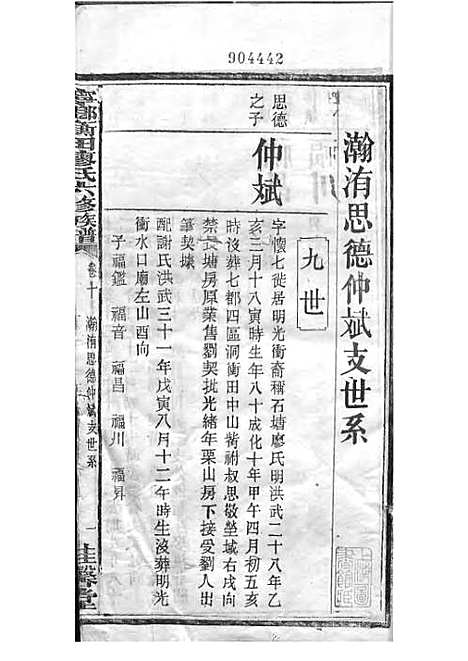 904442
瀚洧思德仲斌支世系
九世
思德
之子
仲斌
字懷七徙居明光衝裔稱石塘廖氏明洪武二十八年乙
亥三月十八寅時生年八十成化十年甲午四月初五亥
時沒葬七都四區洞衡田中山觜祔叔思敬塋城右戌向
禁長塘房原業售劉契批光緒年栗山房下接受劉人出
筆契據
配謝氏洪武三十一年戊寅八月十二午時生沒葬明光
衝水口廟左山酉向
子福鑑 福音 福昌 福川 福昇
寧鄉衡田廖氏六修族譜
卷十
瀚洧思德仲斌支世系
一